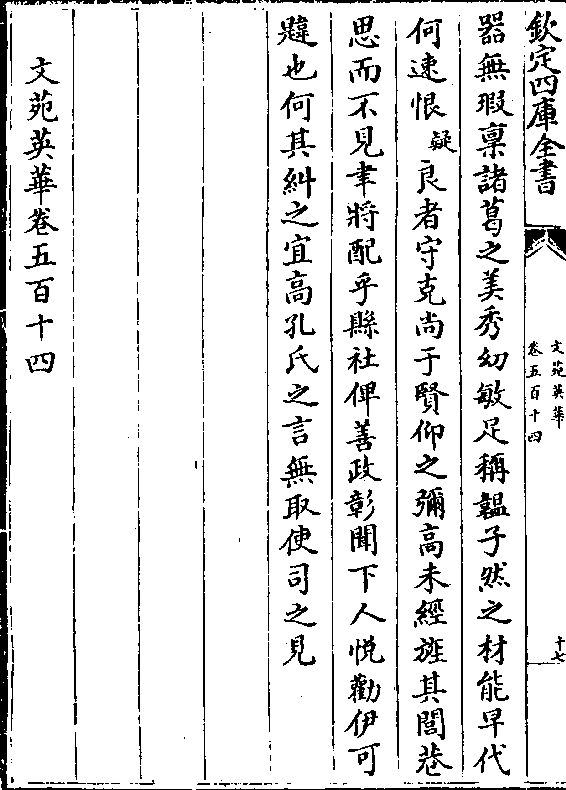 欽定四庫全書
文苑英華
卷五百十四
十七
器無瑕稟諸葛之美秀幼敏足稱韞子然之材能早代
何速恨疑良者守克尚于賢仰之彌高未經旌其閭巷
思而不見聿將配乎縣社俾善政彰聞下人悦勸伊可
韙也何其糾之宜高孔氏之言無取使司之見
文苑英華卷五百十四